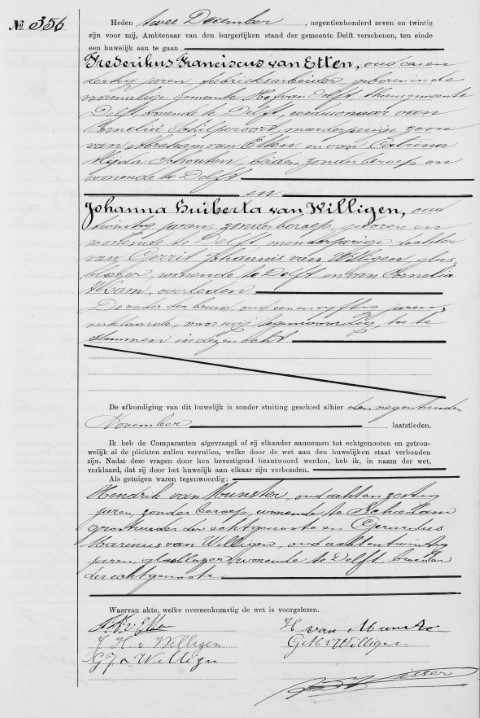 No 356
Heden twee December, negentienhonderd zeven en twintig
zijn voor mij, Ambtenaar van den burgerlijken stand der gemeente Delft verschenen, ten
einde een huwelijk aan te gaan
Frederikus Franciscus van Etten, oud
dertig jaren, fabrieksarbeider, geboren in de
voormalige gemeente Hof van Delft, thans gemeente
Delft, wonende te Delft, weduwnaar van
Cornelia Schilperoort, meerderjarige zoon
van Abraham van Etten en van Catrina
Schouten, beiden zonder beroep en
wonende te Delft
en
Johanna Huiberta van Willigen, oud
twintig jaren, zonder beroep, geboren en
wonende te Delft, minderjarige dochter
van Gerrit Johannis van Willigen, glas
blazer, wonende te Delft en van Cornelia
overleden
De vader der bruid, oud een en vijftig jaren,
verklaarde, voor mij tegenwoordig, toe te
stemmen in deze echt
De afkondiging van dit huwelijk is zonder stuiting geschied alhier den negentienden
November laatstleden.
Ik heb de Comparanten afgevraagd of zij elkander aannemen tot echtgenooten en getrouw-
elijk al de plichten zullen vervullen, welke door de wet aan den huwelijken staat verbonden
zijn. Nadat deze vragen door hen bevestigend beantwoord werden, heb ik, in naam der wet,
verklaard, dat zij door het huwelijk aan elkaar zijn verbonden.
Als getuigen waren tegenwoordig:
Hendrik van Munster, oud acht en zestig
jaren, zonder beroep, wonende te Schiedam
grootvader der echtgenoote en Cornelius
Marinus van Willigen, oud acht en twintig
jaren, wonende te Delft, broeder
der echtgenoote
Waarvan akte, welke overeenkomstig de wet is voorgelezen.
F. F. v Etten
H. van Munster
J H v Willigen
v Willigen
G J v Willigen